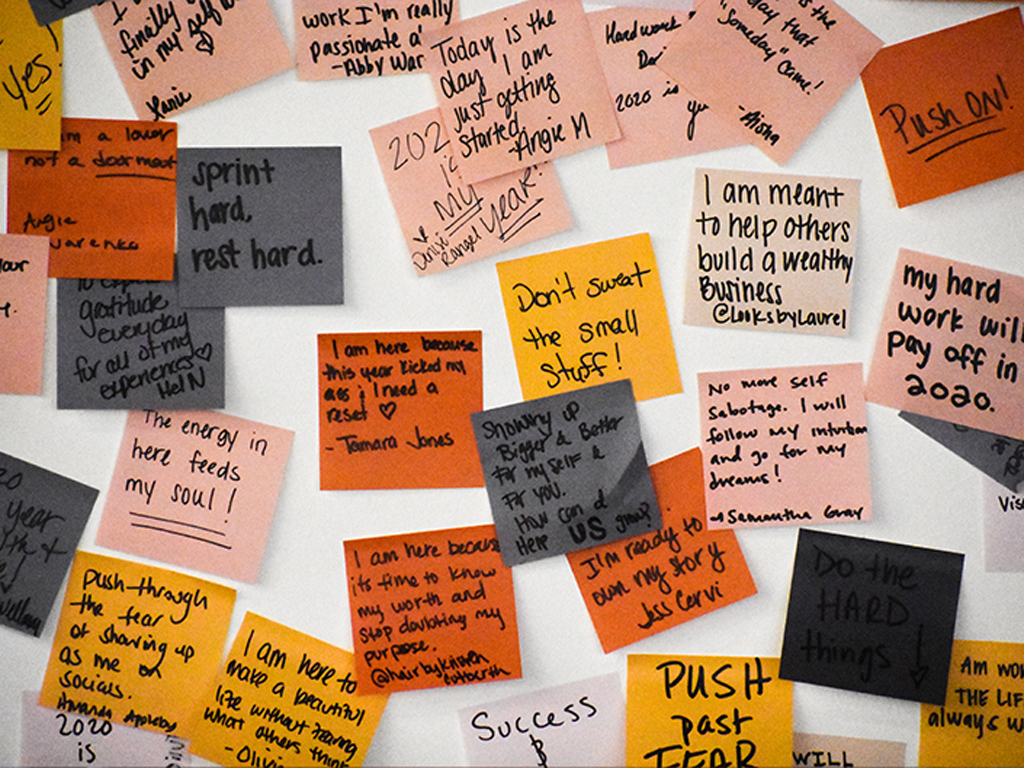 Yes!
finally
in my self
Lanie
work I'm really
passionate
-Abby War
Today is the
day I am
just getting
started
-Angie M
Hard work
2020 is
day that
"Someday" came!
-Aisha
Push ON!
I am a lover
not a doormat
Angie
sprint
hard,
rest hard.
202
MY
YEAR!
Rangel
I am meant
to help others
build a wealthy
Business
@LooksbyLaurel
Don't sweat
the small
stuff!
my hard
work will
pay off in
2020.
gratitude
everyday
for all of my
experiences
I am here because
this year kicked my
ass & I need a
reset
- Tamara Jones
No more self
Sabotage. I will
follow my intuition
and go for my
dreams!
Samantha Gray
Showing up
Bigger & Better
for myself &
for you.
How can I
Here US
The energy in
here feeds
my soul!
year
I am here because
its time to know
my worth and
stop doubting my
purpose.
@hairbykristen
I'm ready to
own my story
Jess Cervi
Do the
HARD
things
push through
the fear
of showing up
as me on
socials.
Amanda Appleby
I am here to
make a beautiful
life without fearing
what others think
-Olivi
2020
is
Success
$
PUSH
past
FEAR
Am wor
THE LIF
always w
WILL